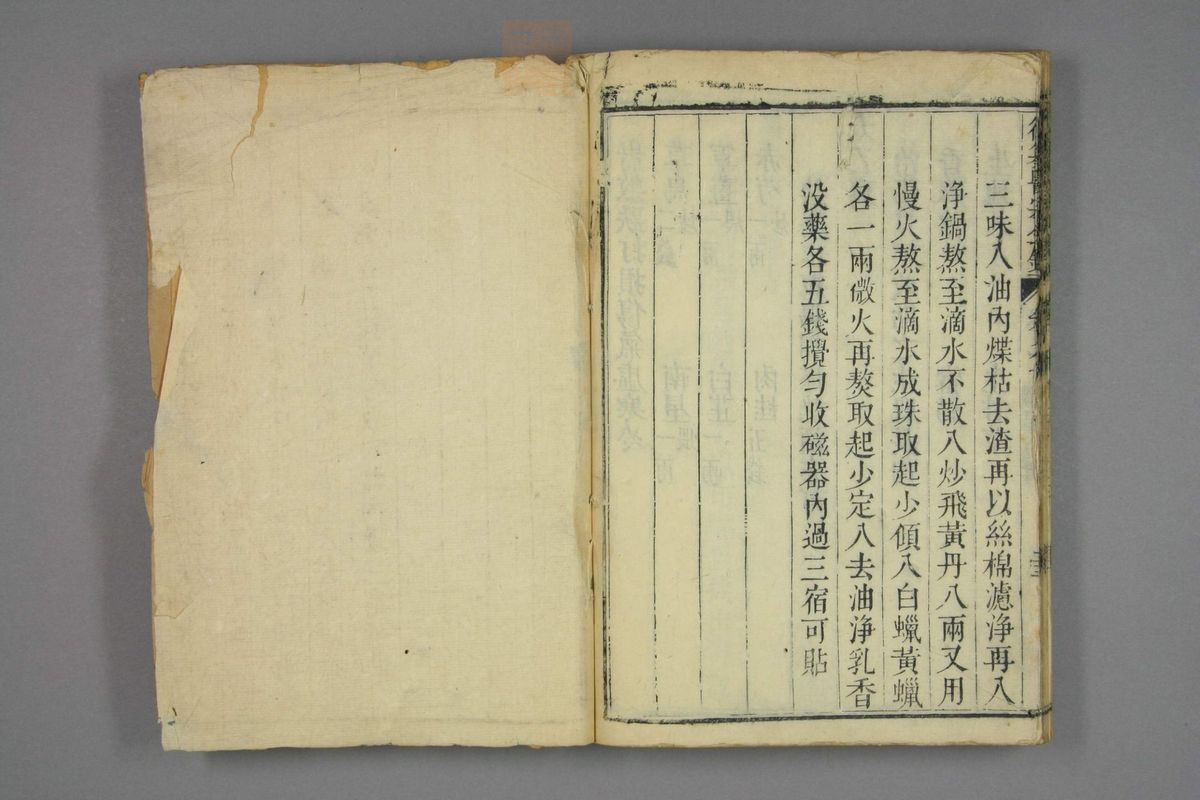 三味入油內煠枯去渣再以絲棉濾淨再入
淨鍋熬至滴水不散入炒飛黃丹八兩又用
慢火熬至滴水成珠取起少傾入白蠟黃蠟
各一兩微火再熬取起少定入去油淨乳香
沒藥各五錢攪勻收磁器內過三宿可貼